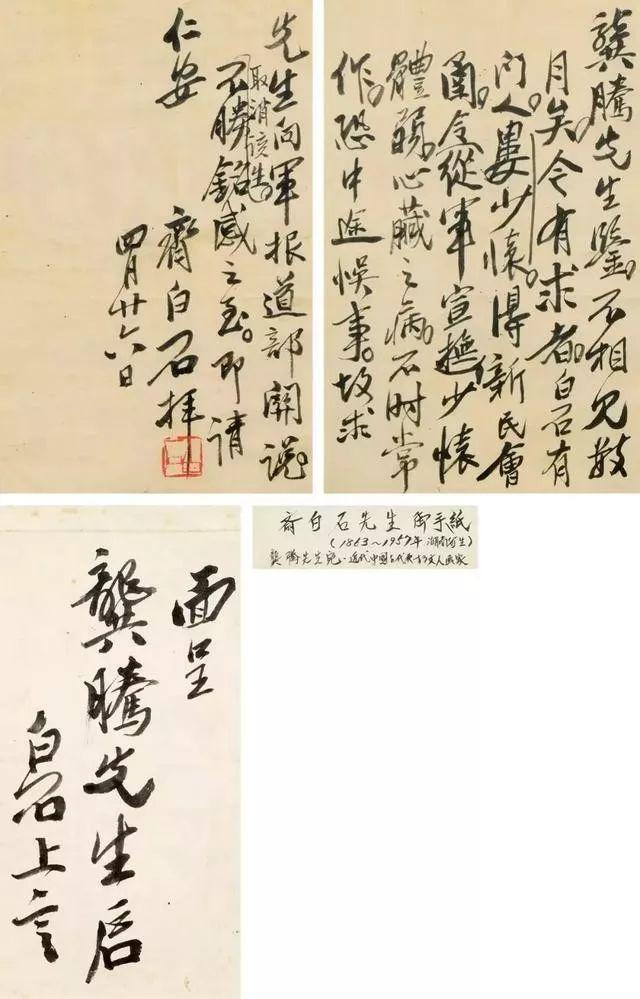 龔騰先生鑒。不相見數
月矣。今有求者。白石有
门人婁少懷。得新民會
函。令從軍宣撫。少懷
體弱。心臟之病。不时常
作。恐中途悞事。故求
先生向軍報道部開說
取消该告
不勝銘感之至。即請
仁安
齊白石拜
四月廿六日
面呈
龔騰先生启
白石上言
斉白石先生 御手紙
(1863～1957年 湖南省生)
龔騰先生宛・近代中國を代表する文人画家